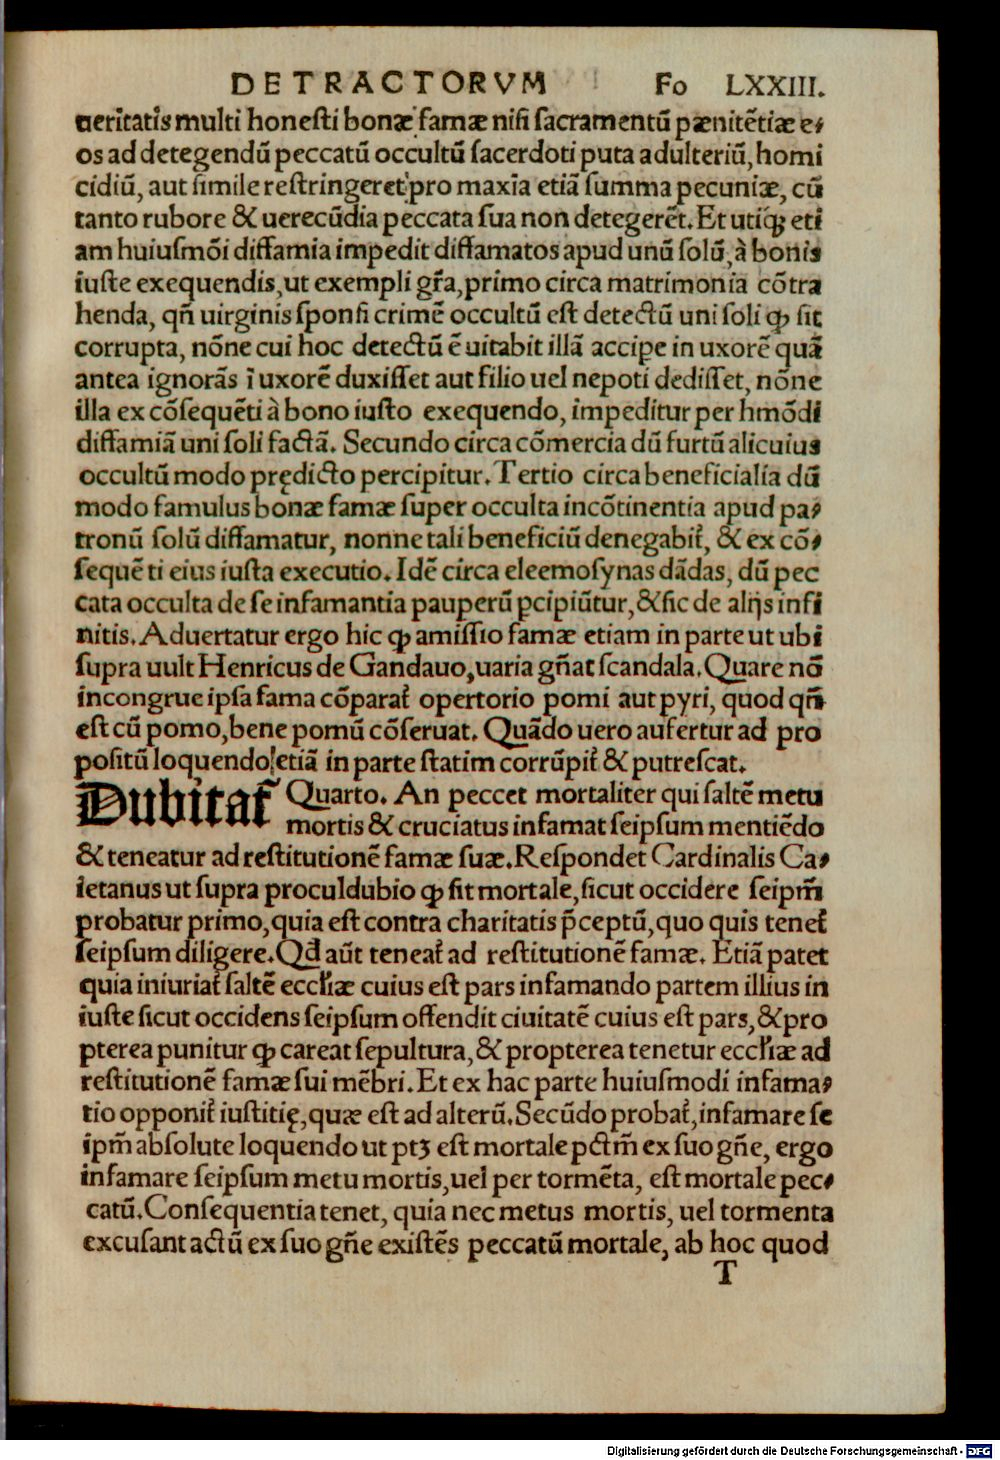 DETRACTORVM Fo LXXIII.
ueritatis multi honesti bonæ famæ nisi sacramentū pænitētiæ e⸗
os ad detegendū peccatū occultū sacerdoti puta adulteriū, homi
cidiū, aut simile restringeret pro maxīa etiā summa pecuniæ, cū
tanto rubore & uerecūdia peccata sua non detegerēt. Et utiqꝫ eti
am huiusmōi diffamia impedit diffamatos apud unū solū, à bonis
iuste exequendis, ut exempli gr̄a, primo circa matrimonia cōtra
henda, qn̄ uirginis sponsi crimē occultū est detectū uni soli ꝙ sit
corrupta, nōne cui hoc detectū ē uitabit illā accipe in uxorē quā
antea ignorās ī uxorē duxisset aut filio uel nepoti dedisset, nōne
illa ex cōsequēti à bono iusto exequendo, impeditur per hmōdi
diffamiā uni soli factā. Secundo circa cōmercia dū furtū alicuius
occultū modo prędicto percipitur. Tertio circa beneficialia dū
modo famulus bonæ famæ super occulta incōtinentia apud pa⸗
tronū solū diffamatur, nonne tali beneficiū denegabit᷑, & ex cō⸗
sequēti eius iusta executio. Idē circa eleemosynas dādas, dū pec
cata occulta de se infamantia pauperū ꝑcipiūtur, & sic de alijs infi
nitis. Aduertatur ergo hic ꝙ amissio famæ etiam in parte ut ubi
supra uult Henricus de Gandauo, uaria gn̄at scandala. Quare nō
incongrue ipsa fama cōparat᷑ opertorio pomi aut pyri, quod qn̄
est cū pomo, bene pomū cōseruat. Quādo uero aufertur ad pro
positū loquendo etiā in parte statim corrūpit᷑ & putrescat.
Dubitat᷑ Quarto. An peccet mortaliter qui saltē metu
mortis & cruciatus infamat seipsum mentiēdo
& teneatur ad restitutionē famæ suæ. Respondet Cardinalis Ca⸗
ietanus ut supra proculdubio ꝙ sit mortale, sicut occidere seipm̄
probatur primo, quia est contra charitatis p̄ceptū, quo quis tenet᷑
seipsum diligere. Qđ aūt teneat᷑ ad restitutionē famæ. Etiā patet
quia iniuriat᷑ saltē eccl̄iæ cuius est pars infamando partem illius in
iuste sicut occidens seipsum offendit ciuitatē cuius est pars, & pro
pterea punitur ꝙ careat sepultura, & propterea tenetur eccl̄iæ ad
restitutionē famæ sui mēbri. Et ex hac parte huiusmodi infama⸗
tio opponit᷑ iustitię, quæ est ad alterū. Secūdo probat᷑, infamare se
ipm̄ absolute loquendo ut ptꝫ est mortale pctm̄ ex suo gn̄e, ergo
infamare seipsum metu mortis, uel per tormēta, est mortale pec⸗
catū. Consequentia tenet, quia nec metus mortis, uel tormenta
excusant actū ex suo gn̄e existēs peccatū mortale, ab hoc quod
T
Digitalisierung gefördert durch die Deutsche Forschungsgemeinschaft - DFG